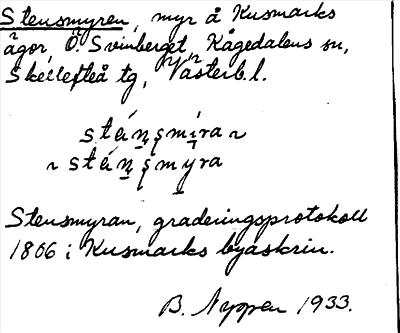 Stensmyren, myr å Kusmarks
ägor, Ö. Svinberget, Kågedalens sn,
Skellefteå tg, Västerb. l.
stén̥ʂmíra ~
~ stén̥ʂmyra
Stensmyran, graderingsprotokoll
1806 i Kusmarks byaskrin.
B. Nyppen 1933.